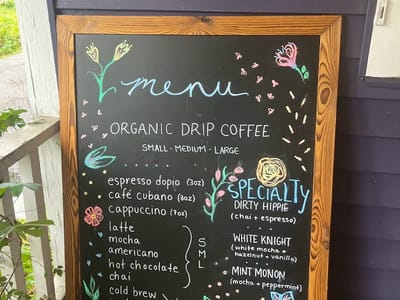 menu
ORGANIC DRIP COFFEE
SMALL - MEDIUM - LARGE
espresso dopio (3oz)
café cubano (3oz)
cappuccino (7oz)
latte
mocha
americano
hot chocolate
chai
S
M
L
cold brew
SPECIALTY
DIRTY HIPPIE
(chai + espresso)
WHITE KNIGHT
(white mocha +
hazelnut + vanilla)
MINT MONON
(mocha + peppermint)